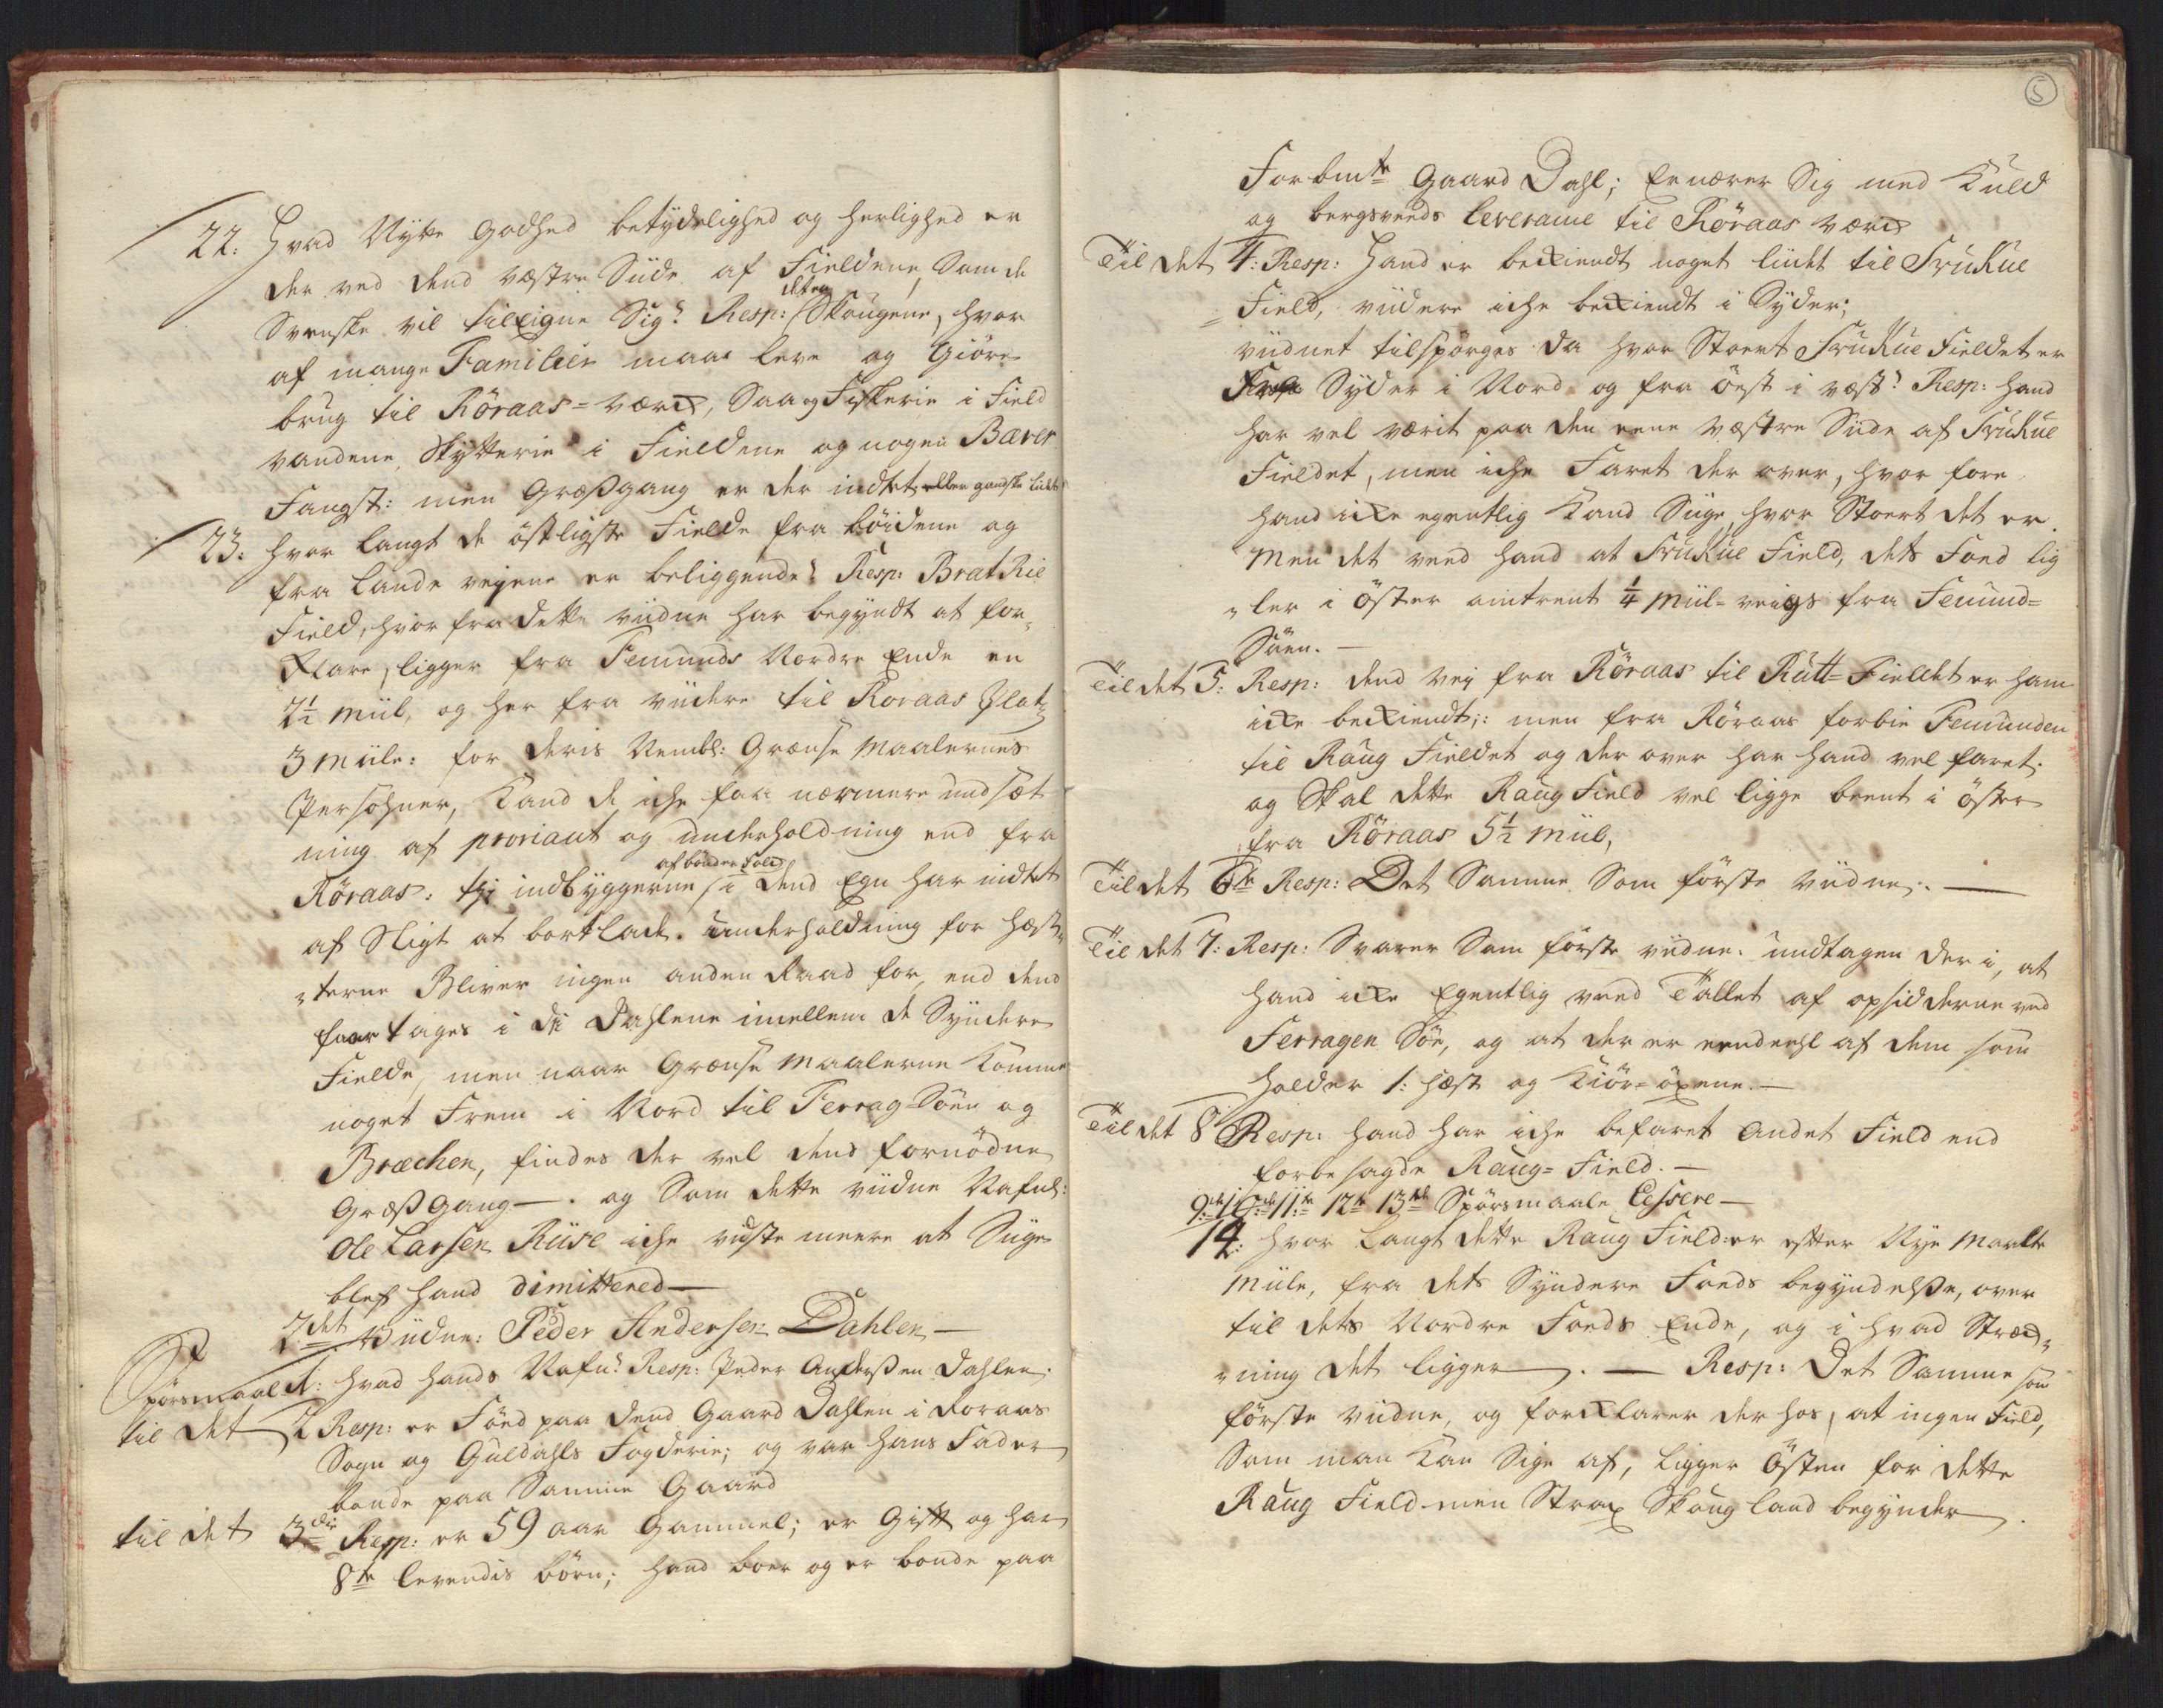 22: Hvad Nytte Godhed betydelighed og herlighed er
der ved dend væstre Siide af Fieldene, Som de
Svenske vil tileigne Sig? Resp: deren Skougene, hvor
af mange Familier maae leve og Giöre
brug til Röraas=værck, Saa og Fiskerie i Field
vandene, Skytterie i Fieldene og nogen Bæver
Fangst: men Græsgang er der indtet eller gandske lidet
23: hvor langt de östligste Fielde fra böidene og
fra Lande vejene er beliggende? Resp: BratRie
Field, hvor fra dette viidne har begyndt at for¬
klare, ligger fra Femunds Nordre Ende en
2½ Miil, og her fra viidere til Roraas Platz
3 Miile: for deris Nembl: Grænse Maalernes
Persohner, Kand de iche faa nærmere undsæt
ning af proviant og underholdning end fra
Röraas: thi indbyggerne af bönder Folck i dend Egn har indtet
af Sligt at bortlade. Underholdning for Hæst¬
terne Bliver ingen anden Raad for, end dend
faar tages i di Dahlene imellem de Syndere
Fielde, men naar Grænse Maalerne Komme
noget Frem i Nord til Ferrag=Söen og
Bræchen, findes der vel dend fornödne
Græs Gang —. og Som dette viidne Nafnl:
Ole Larsen Riise iche viste meere at Siige
blef hand dimittered —
2det Viidne: Peder Andersen Dahlen —
Spörsmaal 1: hvad hands Nafn? Resp: Peder Anderssen Dahlen.
til det 2 Resp: er Föed paa dend Gaard Dahlen i Roraas
Sogn og Guldahls Fogderie; og var hans Fader
bonde paa Samme Gaard
til det 3die Resp: er 59 aar Gammel; er Gift og har
8te levendis börn; hand boer og er bonde paa
5
Forbmte Gaard Dahl; Ernærer Sig med Kuld
og bergsveds leverance til Röraas værck
Til det 4: Resp: Hand er beKiendt noget liidet til FruKue
Field, viidere iche beKiendt i Syder;
viidnet tilspörges da hvor Stoert FruKue Fieldet er
Fra Syder i Nord og fra öest i væst? Resp: hand
har vel værit paa den eene væstre Siide af FruKue
Fieldet, men iche Faret der over, hvor fore
hand icke egentlig Kand Siige hvor Stoert det er.
Men det veed hand at FruKue Field, dets Foed lig
ler i öster omtrent ¼ Miil=veigs fra Femund=
Söen. —
Til det 5: Resp: dend vej fra Röraas til Rutt=Fieldet er ham
icke beKiendt;: men fra Röraas forbie Femunden
til Raug Fieldet og der over har hand vel faret.
og Skal dette Raug Field vel ligge beent i öster
fra Röraas 5½ Miil,
Til det 6te Resp: Det Samme Som förste viidne. —
Til det 7: Resp: Svarer Som förste viidne. undtagen der i, at
hand icke Egentlig veed Tallet af opsidderne ved
Ferragen Söe, og at der er eendeehl af dem som
holder 1: hæst og Kiör=öxene. —
Til det 8 Resp: hand har iche befaret andet Field end
forbesagde Raug=Field. —
9de 10de 11te 12te 13de Spörsmaale Cessere —
14: hvor Langt dette Raug Field er efter Nye Maalte
Miile, fra dets Syndere Foeds begyndelse, over
til dets Nordre Foeds Ende, og i hvad Stræck¬
ning det ligger. — Resp: Det Samme som
förste viidne, og forklarer der hos, at ingen Field,
Som man Kan Sige af, Ligger östen for dette
Raug Field men Strax Skoug land begynder.